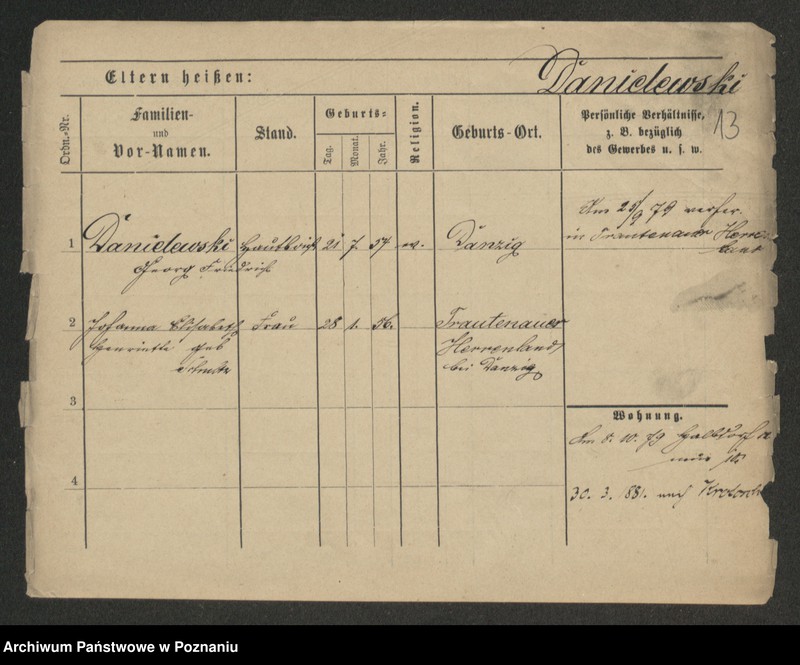 Eltern heißen:
Danielewski
13
Ordn.-Nr.
Familien-
und
Vor-Namen.
Stand.
Geburts-
Tag.
Monat.
Jahr.
Religion.
Geburts-Ort.
Persönliche Verhältnisse,
z. B. bezüglich
des Gewerbes u. s. w.
1
Danielewski
Georg Friedrich
21 7. 54 ev.
Danzig
Am 28/9 79
in Trautenauer Herren
land
2
Johanna Elisabeth
Henriette geb
Frau
28 1. 56.
Trautenauer
Herrenland
bei Danzig
3
4
Wohnung.
Am 8. 10. 79 Halbdorf
30. 3. 881. nach
Archiwum Państwowe w Poznaniu